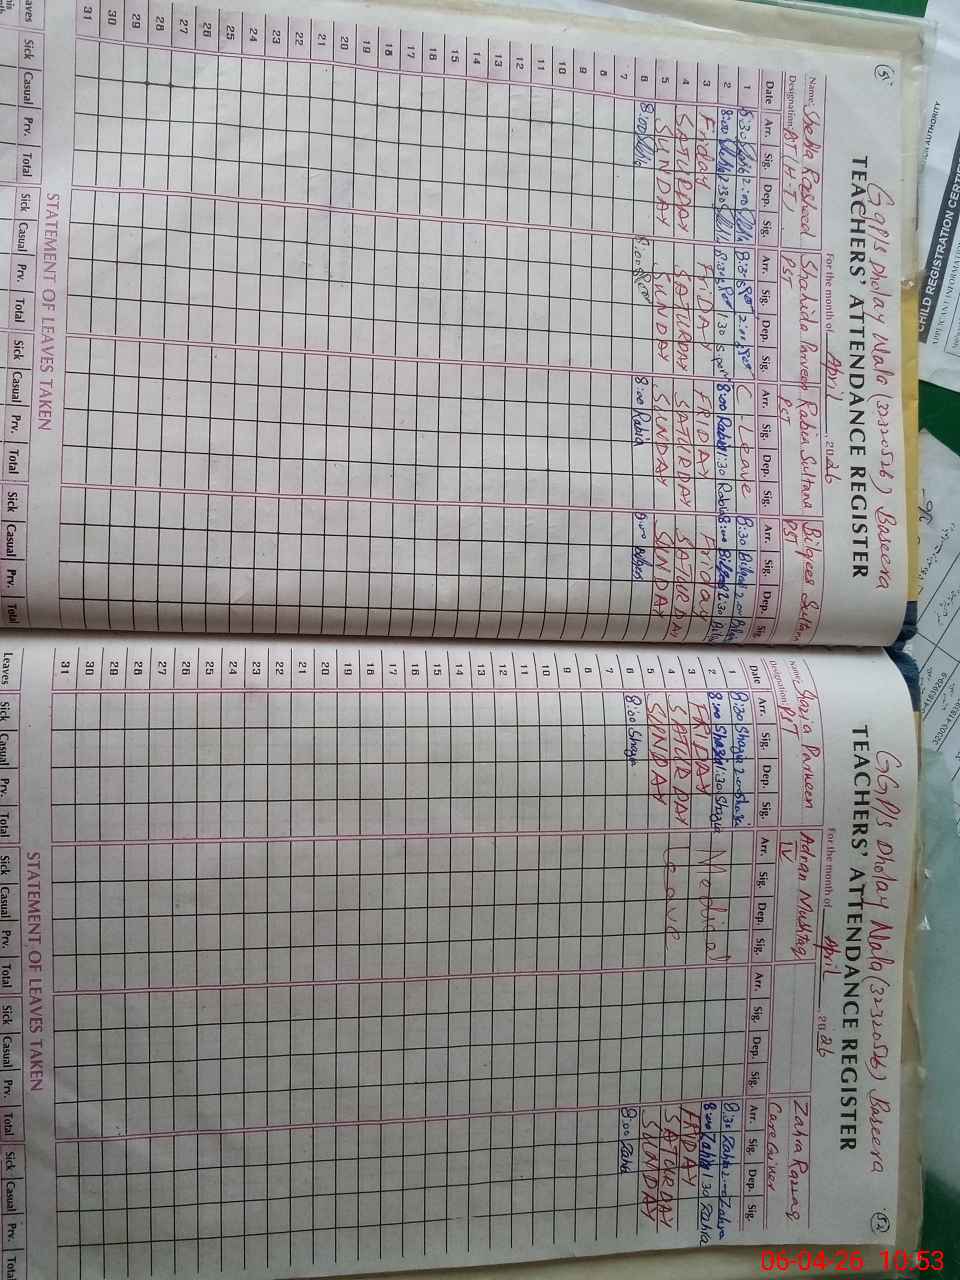 (51)
GGP/S Dholay Wala (32320526) Baseera
TEACHERS' ATTENDANCE REGISTER
For the month of April 2026
Name: Sheeba Rasheed Shahida Parveen Rabia Sultana Bilqees Sultana
Designation: PST PST PST
Date Arr. Sig. Dep. Sig. Arr. Sig. Dep. Sig. Arr. Sig. Dep. Sig. Arr. Sig. Dep. Sig.
1 8:30 2:00 8:30 2:00 C-Leave 8:30 2:00
2 8:00 1:30 8:00 Rabia 1:30 Rabia 8:00
3 Friday FriDAY FRIDAY Friday
4 SATURDAY SATURDAY SATURDAY SATURDAY
5 SUNDAY SUNDAY SUNDAY SUNDAY
6 8:00 8:00 8:00 Rabia 8:00
7
8
9
10
11
12
13
14
15
16
17
18
19
20
21
22
23
24
25
26
27
28
29
30
31
STATEMENT OF LEAVES TAKEN
Sick Casual Prv. Total Sick Casual Prv. Total Sick Casual Prv. Total Sick Casual Prv. Total
GGP/S Dholay Wala (32320526) Baseera
(52)
TEACHERS' ATTENDANCE REGISTER
For the month of April 2026
Name: Shazia Parveen Adnan Mushtaq Zahra Razzaq
Designation: PST IV Care Gainer
Date Arr. Sig. Dep. Sig. Arr. Sig. Dep. Sig. Arr. Sig. Dep. Sig. Arr. Sig. Dep. Sig.
1 8:30 Shazia 2:00 Shazia 8:30 Zahra 2:00 Zahra
2 8:00 Shazia 1:30 Shazia Medical 8:00 Zahra 1:30 Zahra
3 FRIDAY FRIDAY
4 SATURDAY Leave SATURDAY
5 SUNDAY SUNDAY
6 8:00 Shazia 8:00 Zahra
7
8
9
10
11
12
13
14
15
16
17
18
19
20
21
22
23
24
25
26
27
28
29
30
31
STATEMENT OF LEAVES TAKEN
Leaves Sick Casual Prv. Total Sick Casual Prv. Total Sick Casual Prv. Total Sick Casual Prv. Total
CHILD REGISTRATION CERTIF
06-04-26 10:53